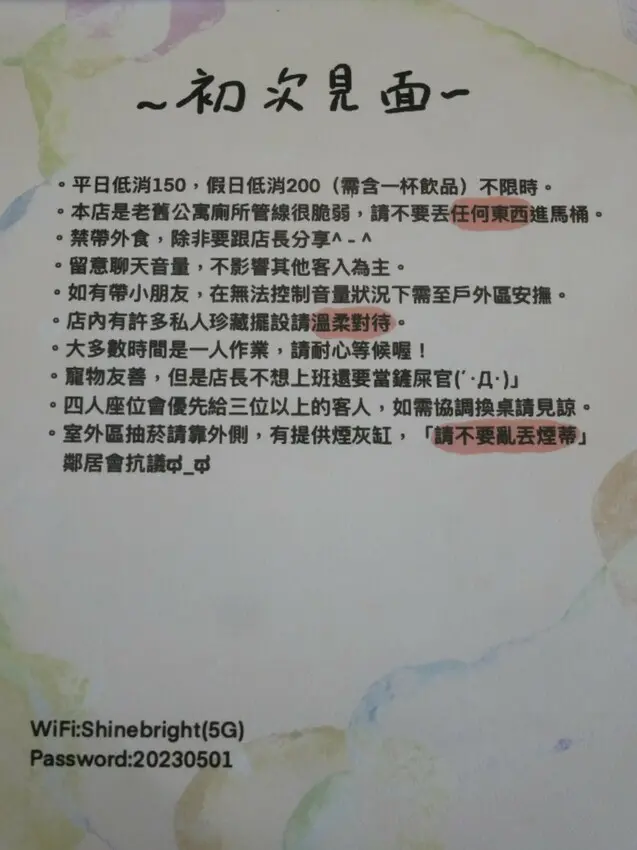 ~初次見面~
。平日低消150，假日低消200（需含一杯飲品）不限時。
。本店是老舊公寓廁所管線很脆弱，請不要丟任何東西進馬桶。
。禁帶外食，除非要跟店長分享^ - ^
。留意聊天音量，不影響其他客入為主。
。如有帶小朋友，在無法控制音量狀況下需至戶外區安撫。
。店內有許多私人珍藏擺設請溫柔對待。
。大多數時間是一人作業，請耐心等候喔！
。寵物友善，但是店長不想上班還要當鏟屎官(´·Д·)」
。四人座位會優先給三位以上的客人，如需協調換桌請見諒。
。室外區抽菸請靠外側，有提供煙灰缸，「請不要亂丟煙蒂」
鄰居會抗議ಥ_ಥ
WiFi:Shinebright(5G)
Password:20230501